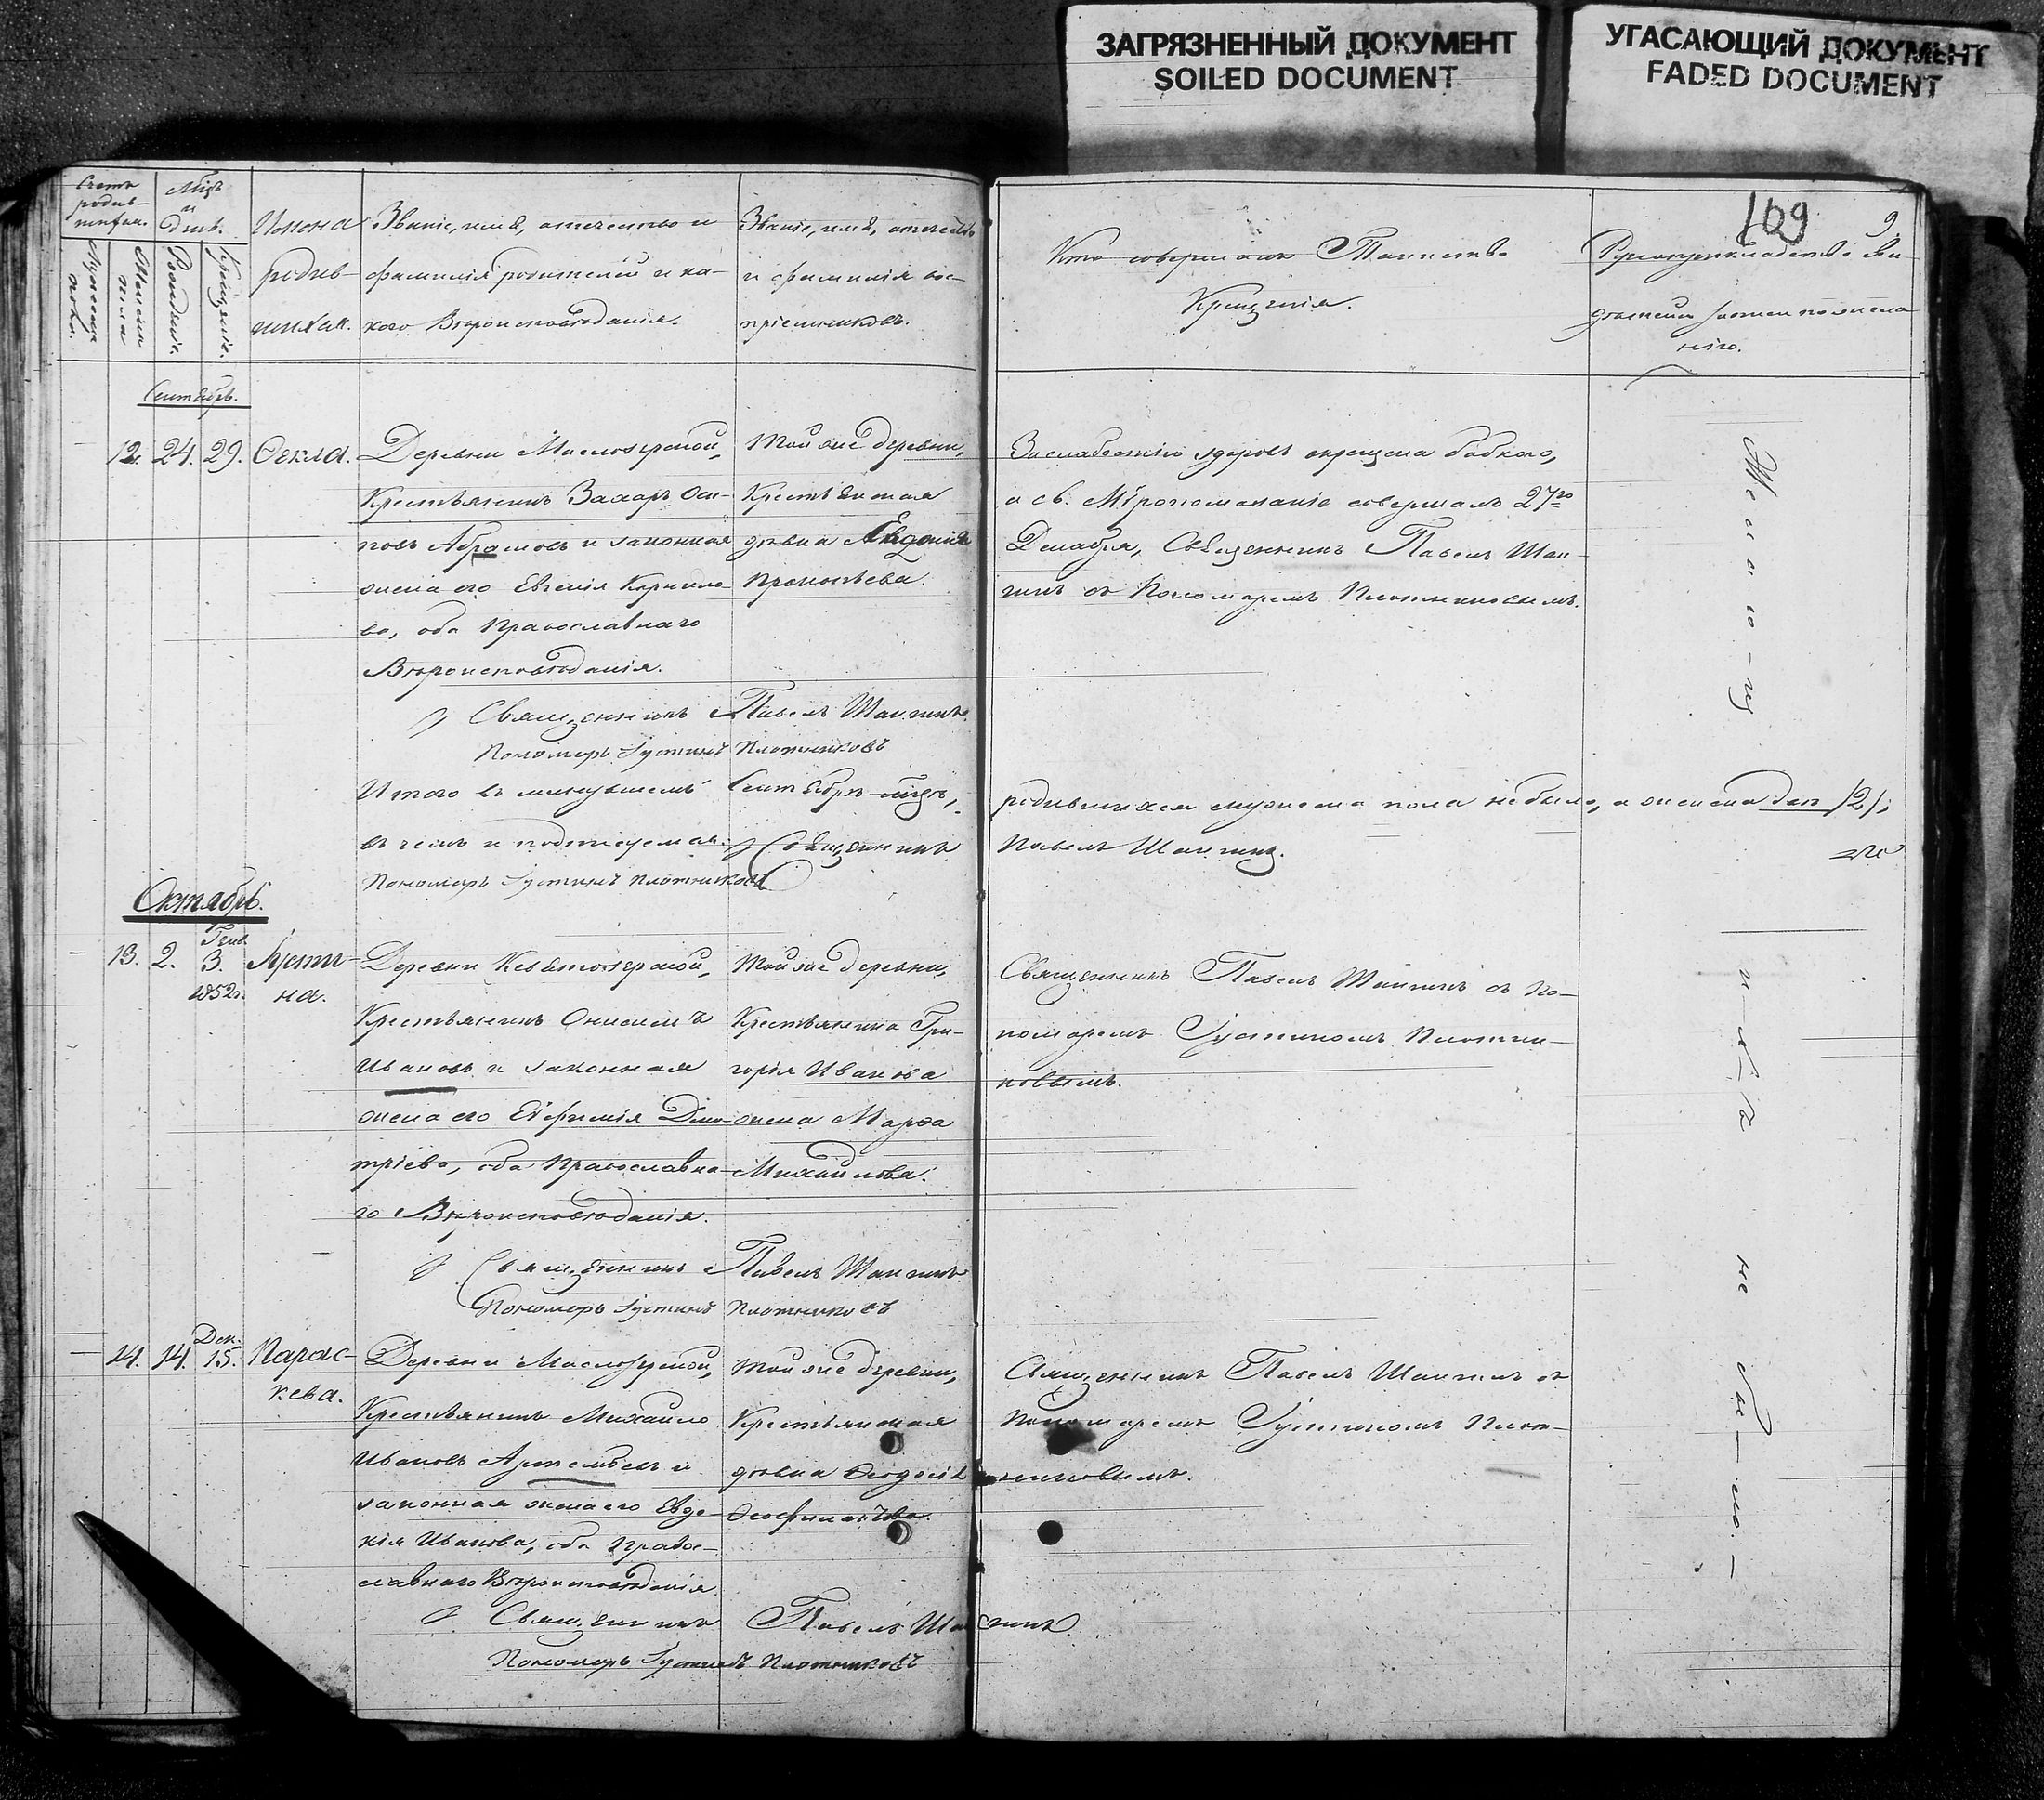 ЗАГРЯЗНЕННЫЙ ДОКУМЕНТ
SOILED DOCUMENT
УГАСАЮЩИЙ ДОКУМЕНТ
FADED DOCUMENT
Счетъ родив-шихся.
Мужеска пола.
Женска пола
Мѣсяцъ и день.
Рожденія.
Крещенія.
Имена
родив-
шихся.
Званіе, имя, отчество и
фамилія родителей и ка-
кого Вѣроисповѣданія.
Званіе, имя, отчество
и фамилія вос-
пріемниковъ.
Кто совершалъ Таинство
Крещенія.
169
9
Рукоприкладство сви-
дѣтелей записи по жела
нію.
Сентябрь.
12. 24. 29. Ѳекла.
Деревни Маслозерской,
Крестьянинъ Захаръ Оси-
повъ Абрамовъ и законная
жена его Евгенія Корнило-
ва, оба Православнаго
Вѣроисповѣданія.
Той же деревни,
Крестьянская
дѣвка Евдокія
Прокопьева.
За слабостію здоровья окрещена бабкою,
а св. Мѵропомазаніе совершалъ 27го
Декабря, Священникъ Павелъ Шан-
гинъ съ Пономаремъ Плотниковымъ.
Священникъ Павелъ Шангинъ.
Пономарь Іустинъ Плотниковъ
Итого въ минувшемъ Сентябрѣ мцѣ, родившихся мужеска пола не было, а женска два /2/;
въ чемъ и подписуемся. Священникъ Павелъ Шангинъ.
Пономарь Іустинъ Плотниковъ
Октябрь.
13. 2. Генв. 3. 1852г. Іусти-
на.
Деревни Кевятозерской,
Крестьянинъ Онисимъ
Ивановъ и законная
жена его Евфимія Дми-
тріева, оба Православна-
го Вѣроисповѣданія.
Той же деревни,
Крестьянина Гри-
горія Иванова
жена Марѳа
Михайлова.
Священникъ Павелъ Шангинъ съ По-
номаремъ Іустиномъ Плотни-
ковымъ.
Священникъ Павелъ Шангинъ.
Пономарь Іустинъ Плотниковъ
14. 14. Дек. 15. Парас-
кева.
Деревни Маслозерской,
Крестьянинъ Михайло
Ивановъ Артемьевъ и
законная жена его Евдо-
кія Иванова, оба Право-
славнаго Вѣроисповѣданія.
Той же деревни,
Крестьянская
дѣвка Ѳеодосія
Священникъ Павелъ Шангинъ съ
Пономаремъ Іустиномъ Плот-
никовымъ.
Священникъ Павелъ Шангинъ.
Пономарь Іустинъ Плотниковъ
не бы-ло.